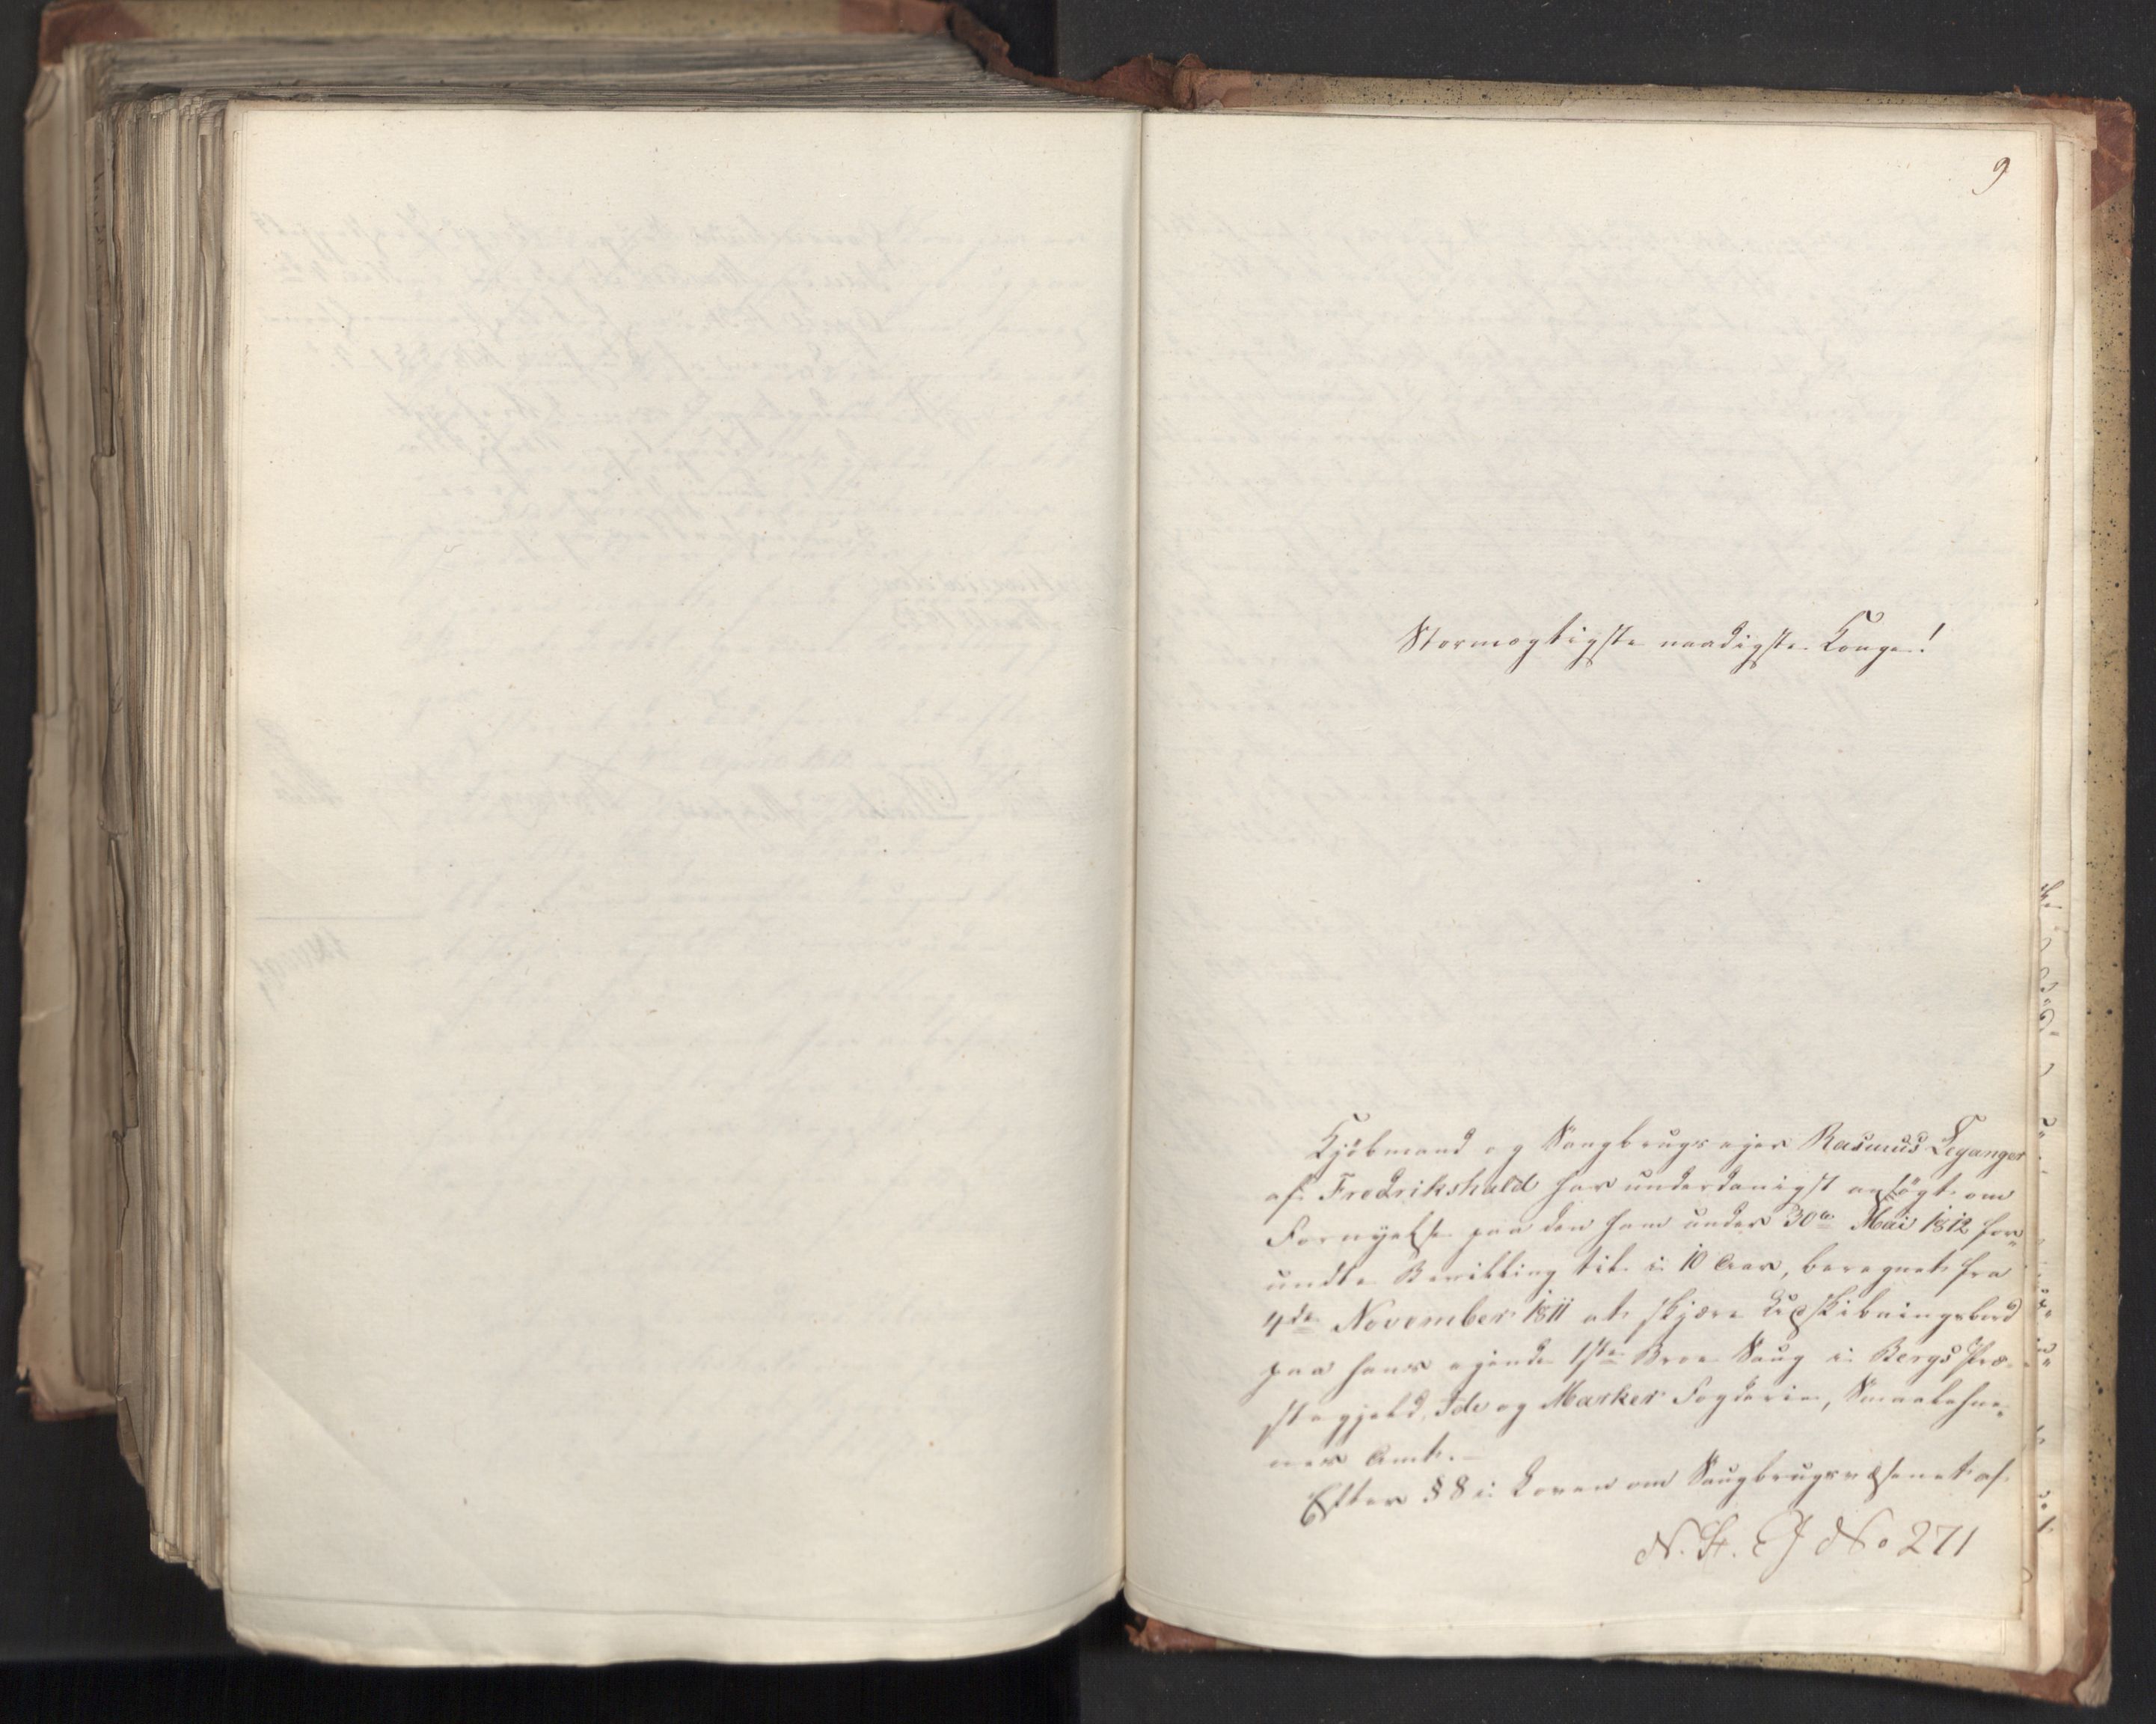 9
Stormægtigste naadigste Konge!
Kjöbmand og Saugbrugs ejer Rasmus Leganger
af Fredrikshald har underdanigst ansögt om
Fornyelse paa den ham under 30te Mai 1812 for„
undte Bevilling til i 10 Aar, beregnet fra
4de November 1811 at skjære Udskibningsbord
paa hans ejende 1ste Broe Saug i Bergs Præ„
stegjeld, Ide og Marker Fogderie, Smaalehne„
nes Amt.
Efter § 8 i Loven om Saugbrugsvæsenet af
N. St. No 271